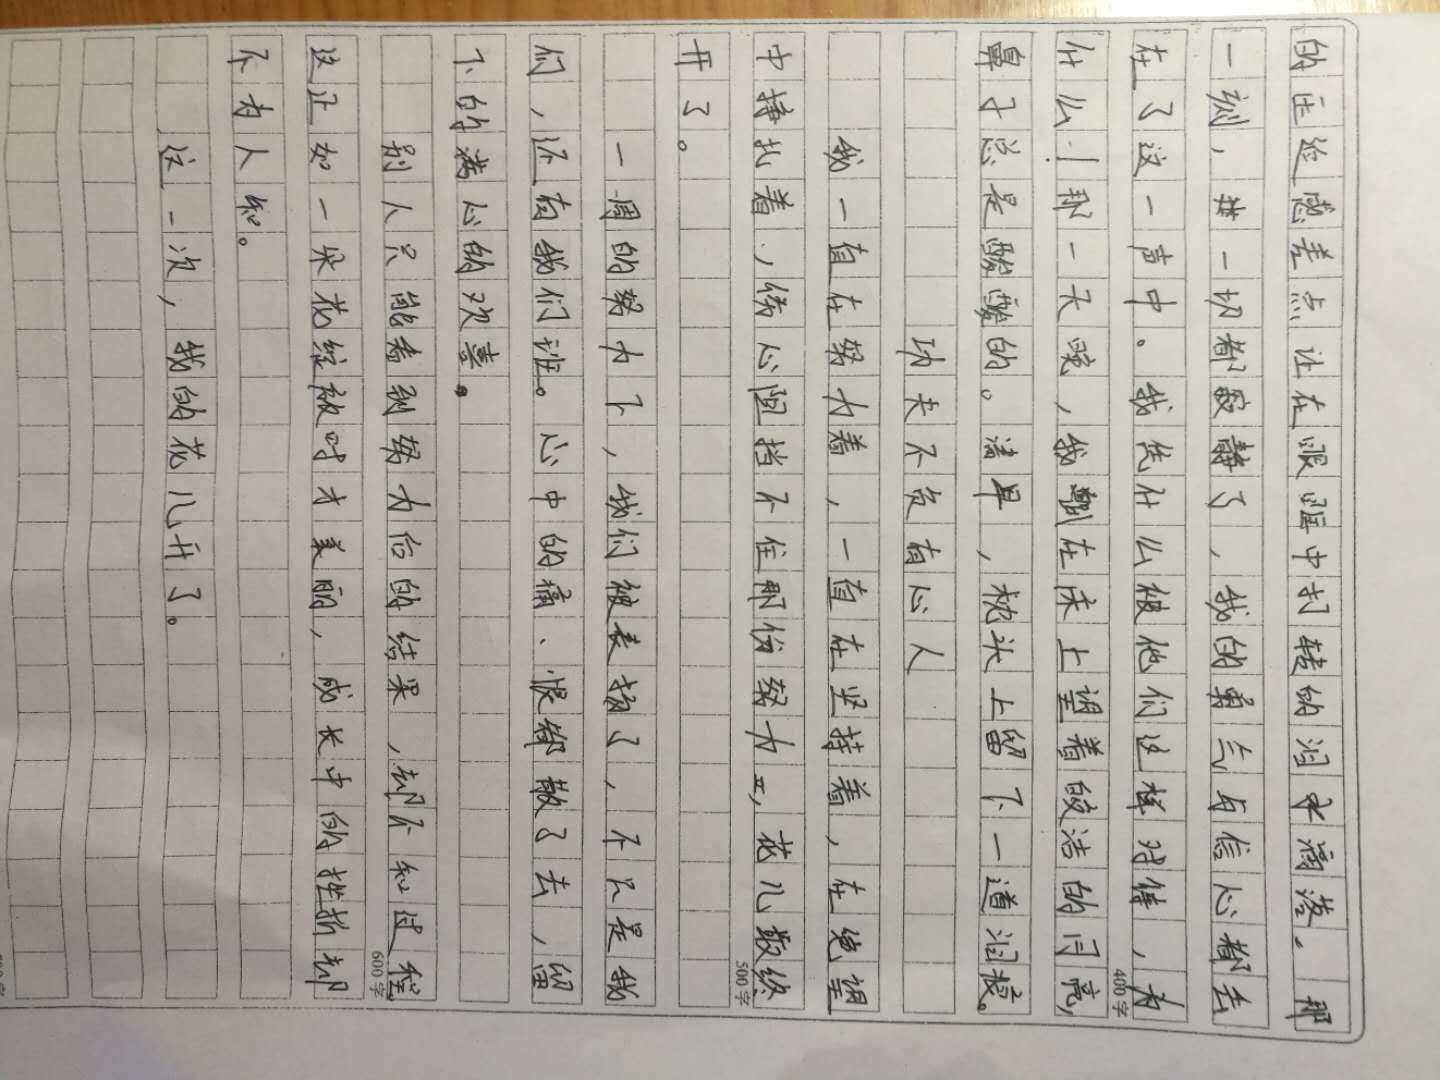 的压迫感差点让在眼眶中打转的泪水滴落。那
一刻，世一切都寂静了，我的勇气与信心都丢
在了这一声中。我凭什么被他们这样对待，为
什么！那一天晚，我躺在床上望着皎洁的月亮，
鼻子总是酸酸的。清早，枕头上留下一道泪痕。
功夫不负有心人
我一直在努力着，一直在坚持着，在绝望
中挣扎着，伤心阻挡不住那份努力，花儿最终
开了。
一周的努力下，我们被表扬了，不只是我
们，还有我们班。心中的痛、恨都散了去，留
下的满心的欢喜。
别人只能看到努力后的结果，却不知过程
这正如一朵花绽放时才美丽，成长中的挫折却
不为人知。
这一次，我的花儿开了。
400字
500字
600字